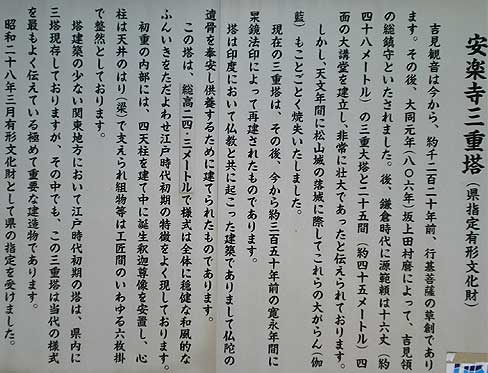 安楽寺三重塔（県指定有形文化財）
吉見観音は今から、約千二百二十年前、行基菩薩の草創であり
ます。その後、大同元年（八〇六年）坂上田村麿によって、吉見領
の総鎮守といたされました。後、鎌倉時代に源範頼は十六丈（約
四十八メートル）の三重大塔と二十五間（約四十五メートル）四
面の大講堂を建立し、非常に壮大であったと伝えられております。
しかし、天文年間に松山城の落城に際してこれらの大がらん（伽
藍）もことごとく焼失いたしました。
現在の三重塔は、その後、今から約三百五十年前の寛永年間に
杲鏡法印によって再建されたものであります。
塔は印度において仏教と共に起こった建築でありまして仏陀の
遺骨を奉安し供養するために建てられたものであります。
この塔は、総高二四・三メートルで様式は全体に穏健な和風的な
ふんいきをただよわせ江戸時代初期の特徴をよく現しております。
初重の内部には、四天柱を建て中に誕生釈迦尊像を安置し、心
柱は天井のはり（梁）で支えられ組物等は工匠間のいわゆる六枚掛
で整然としております。
塔建築の少ない関東地方において江戸時代初期の塔は、県内に
三塔現存しておりますが、その中でも、この三重塔は当代の様式
を最もよく伝えている極めて重要な建造物であります。
昭和二十八年三月有形文化財として県の指定を受けました。